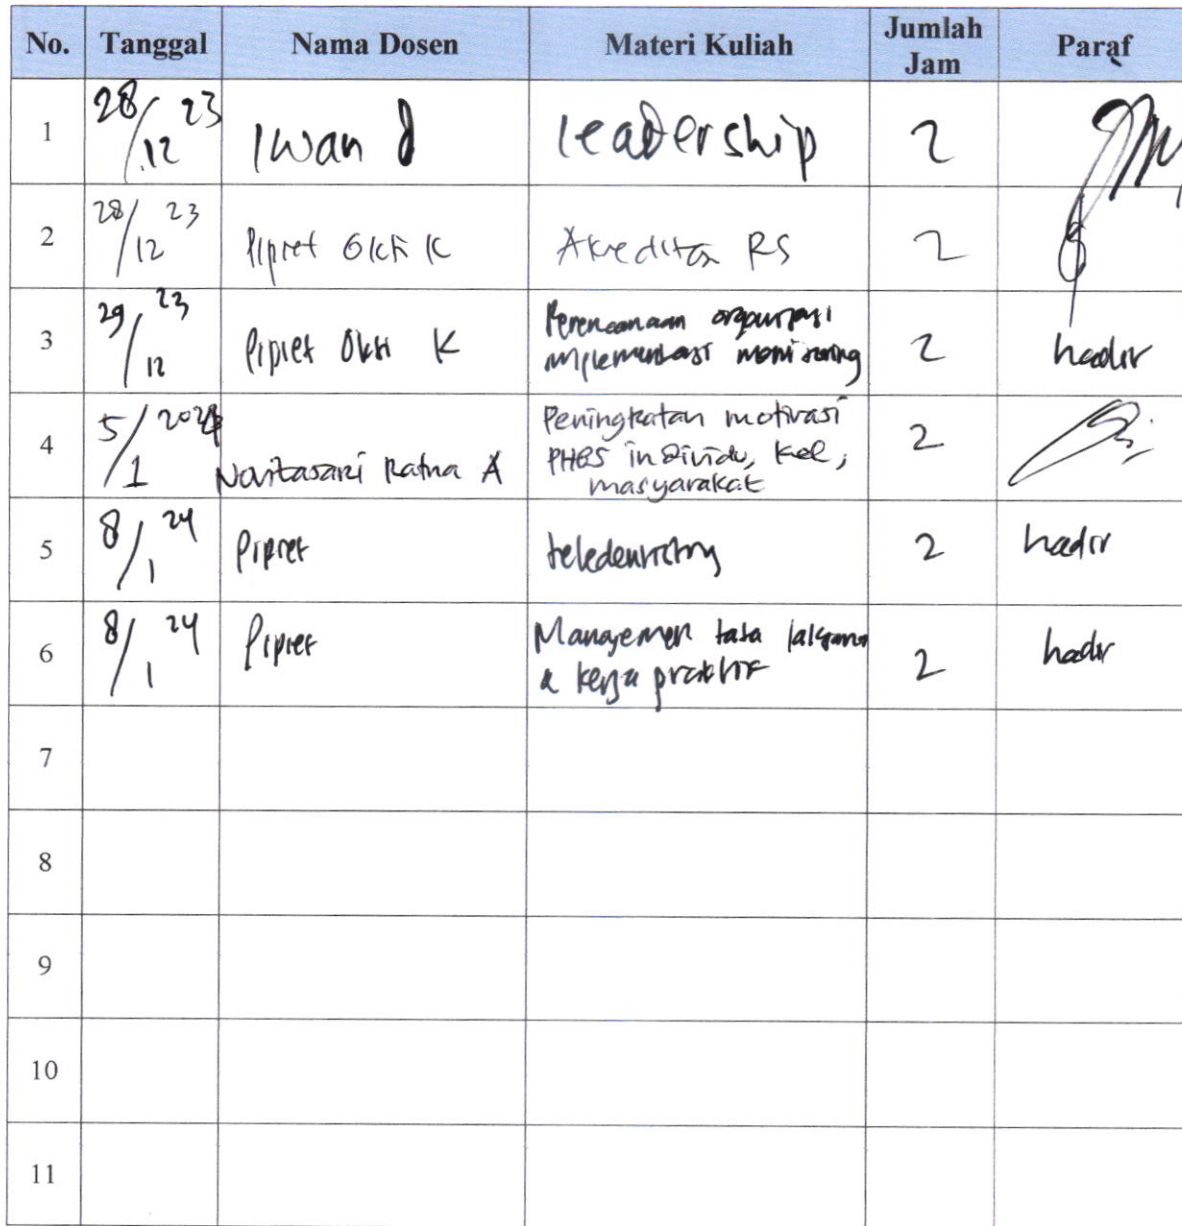 No. Tanggal Nama Dosen Materi Kuliah Jumlah Jam Paraf
1 28/12 23 Iwan d leadership 2
2 28/12 23 Pipiet Okti K Akreditasi RS 2
3 29/12 23 Pipiet Okti K Perencanaan organisasi
implementasi monitoring 2 hadir
4 5/1 2024 Novitasari Ratna A Peningkatan motivasi
PHBS individu, kel,
masyarakat 2
5 8/1 24 Pipiet teledentistry 2 hadir
6 8/1 24 Pipiet Manajemen tata laksana
& kerja praktik 2 hadir
7
8
9
10
11